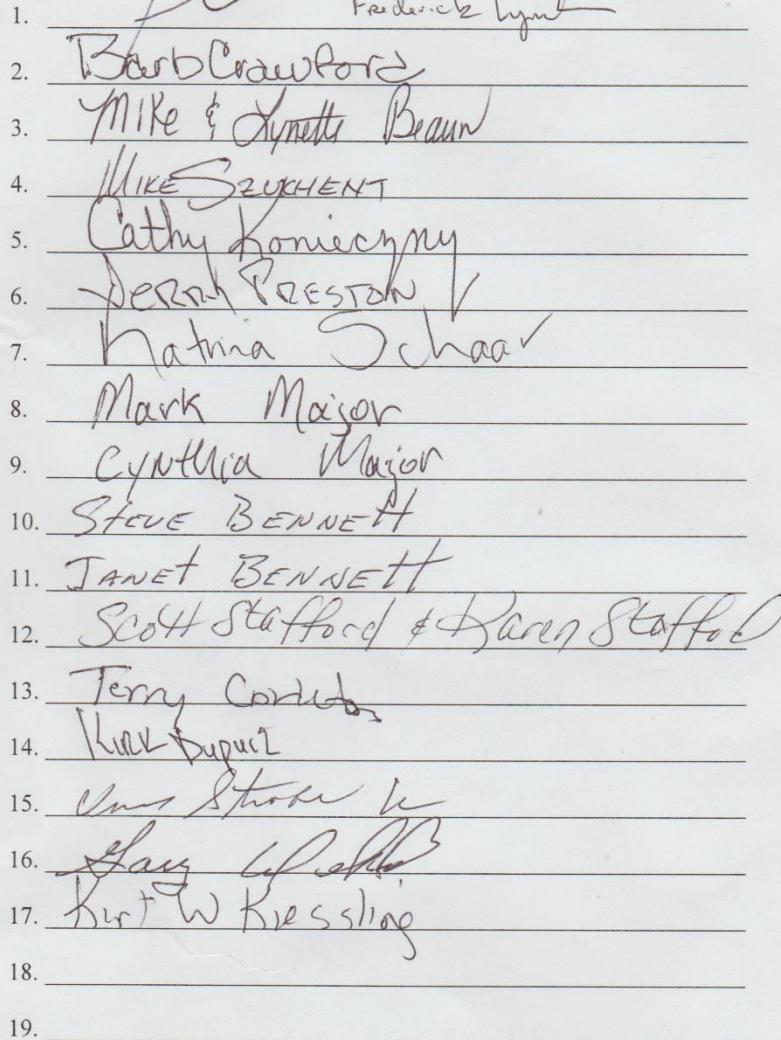 1. Frederick Lynn
2. Barb Crawford
3. Mike & Lynette Beaun
4. MIKE SZUKHENT
5. Cathy Konieczny
6. PRESTON
7. Katrina Schaar
8. Mark Major
9. Cynthia Major
10. STEVE BENNETT
11. JANET BENNETT
12. Scott Stafford & Karen Stafford
13. Terry
14. Kirk
15.
16. Gary
17. Kurt W Kiessling
18.
19.